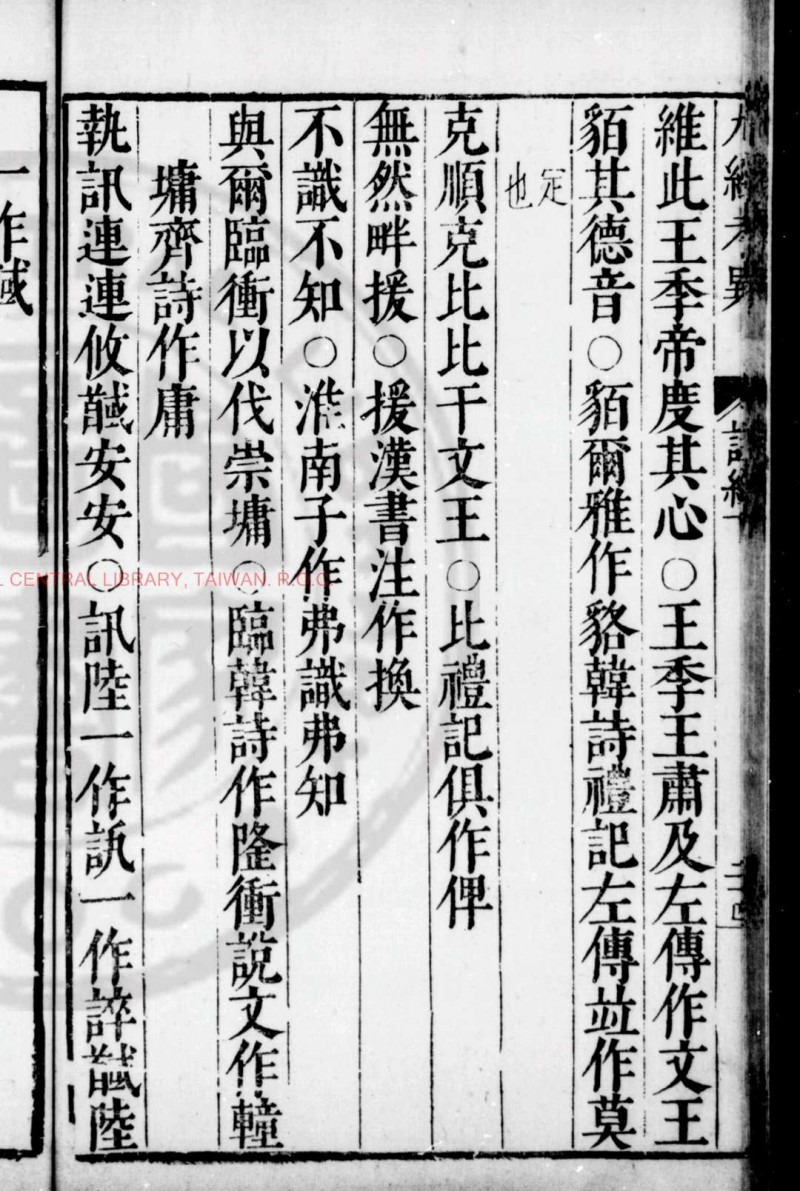 九經考異
詩經
二十四
維此王季帝度其心○王季王肅及左傳作文王
貊其德音○貊爾雅作貉韓詩禮記左傳竝作莫
定
也
克順克比比干文王○比禮記俱作俾
無然畔援○援漢書注作換
不識不知○淮南子作弗識弗知
與爾臨衝以伐崇墉○臨韓詩作隆衝說文作䡴
墉齊詩作庸
執訊連連攸馘安安○訊陸一作訙一作誶馘陸
一作
CENTRAL LIBRARY, TAIWAN. R.O.C.